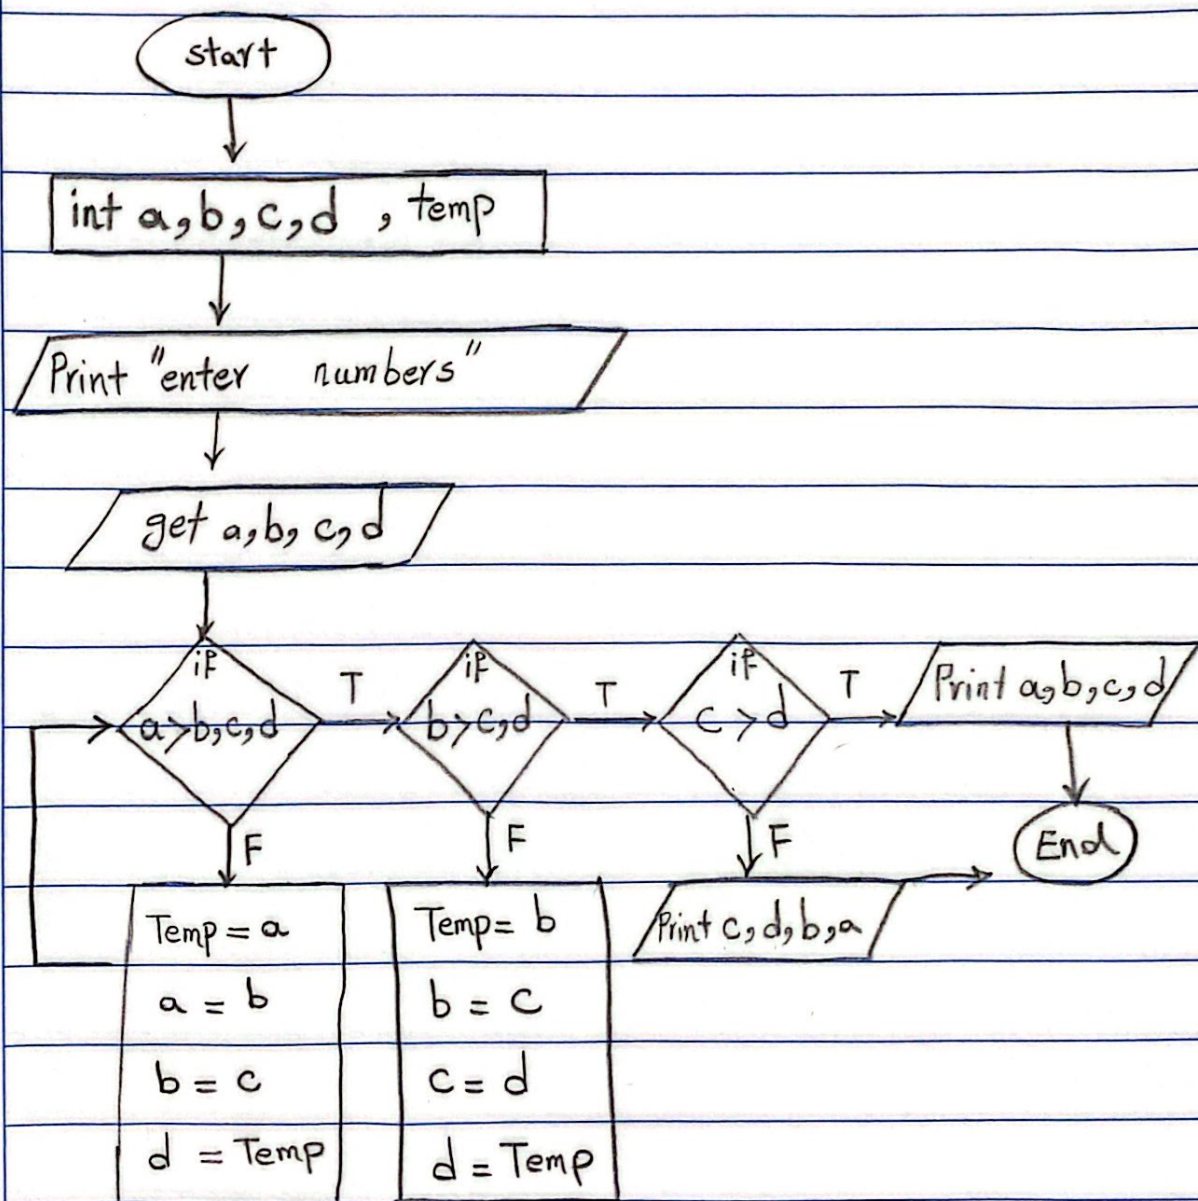 start
int a,b,c,d , temp
Print "enter numbers"
get a,b,c,d
if
a>b,c,d
T
if
b>c,d
T
if
c > d
T
Print a,b,c,d
F
F
F
End
Temp = a
a = b
b = c
d = Temp
Temp= b
b = c
c = d
d = Temp
Print c,d,b,a